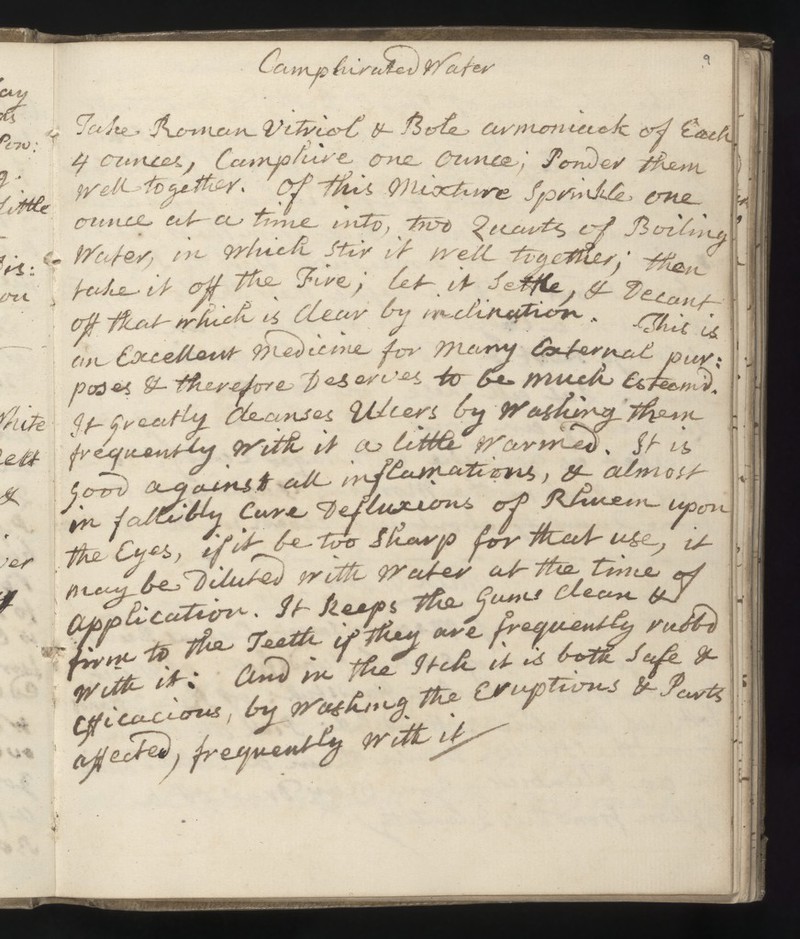 9
Camphirated Water
Take Roman Vitriol & Bole armoniack of Each
4 ounces, Camphire one ounce; Ponder them
well together. Of this Mixture Sprinkle one
ounce at a time into, two Quarts of Boiling
Water, in which Stir it well together; then
take it off the Fire; let it Settle, & Decant
off that which is clear by inclination. This is
an Excellent Medicine for Many External pur:
poses & therefore Deserves to be much Esteemd.
It greatly cleanses Ulcers by Washing them
frequently with it a little warmed. It is
good against all inflamations, & almost
in fallibly Cure Defluxions of Rhuem upon
the Eyes, if it be too Sharp for that use, it
may be Diluted with water at the time of
application. It Keeps the Gums clean &
firm to the Teeth if they are frequently rubbd
with it: And in the Itch it is both Safe &
efficacious, by washing the Eruptions & Parts
affected, frequently with it
ay
Pow:
little
Dis:
ou
White
&